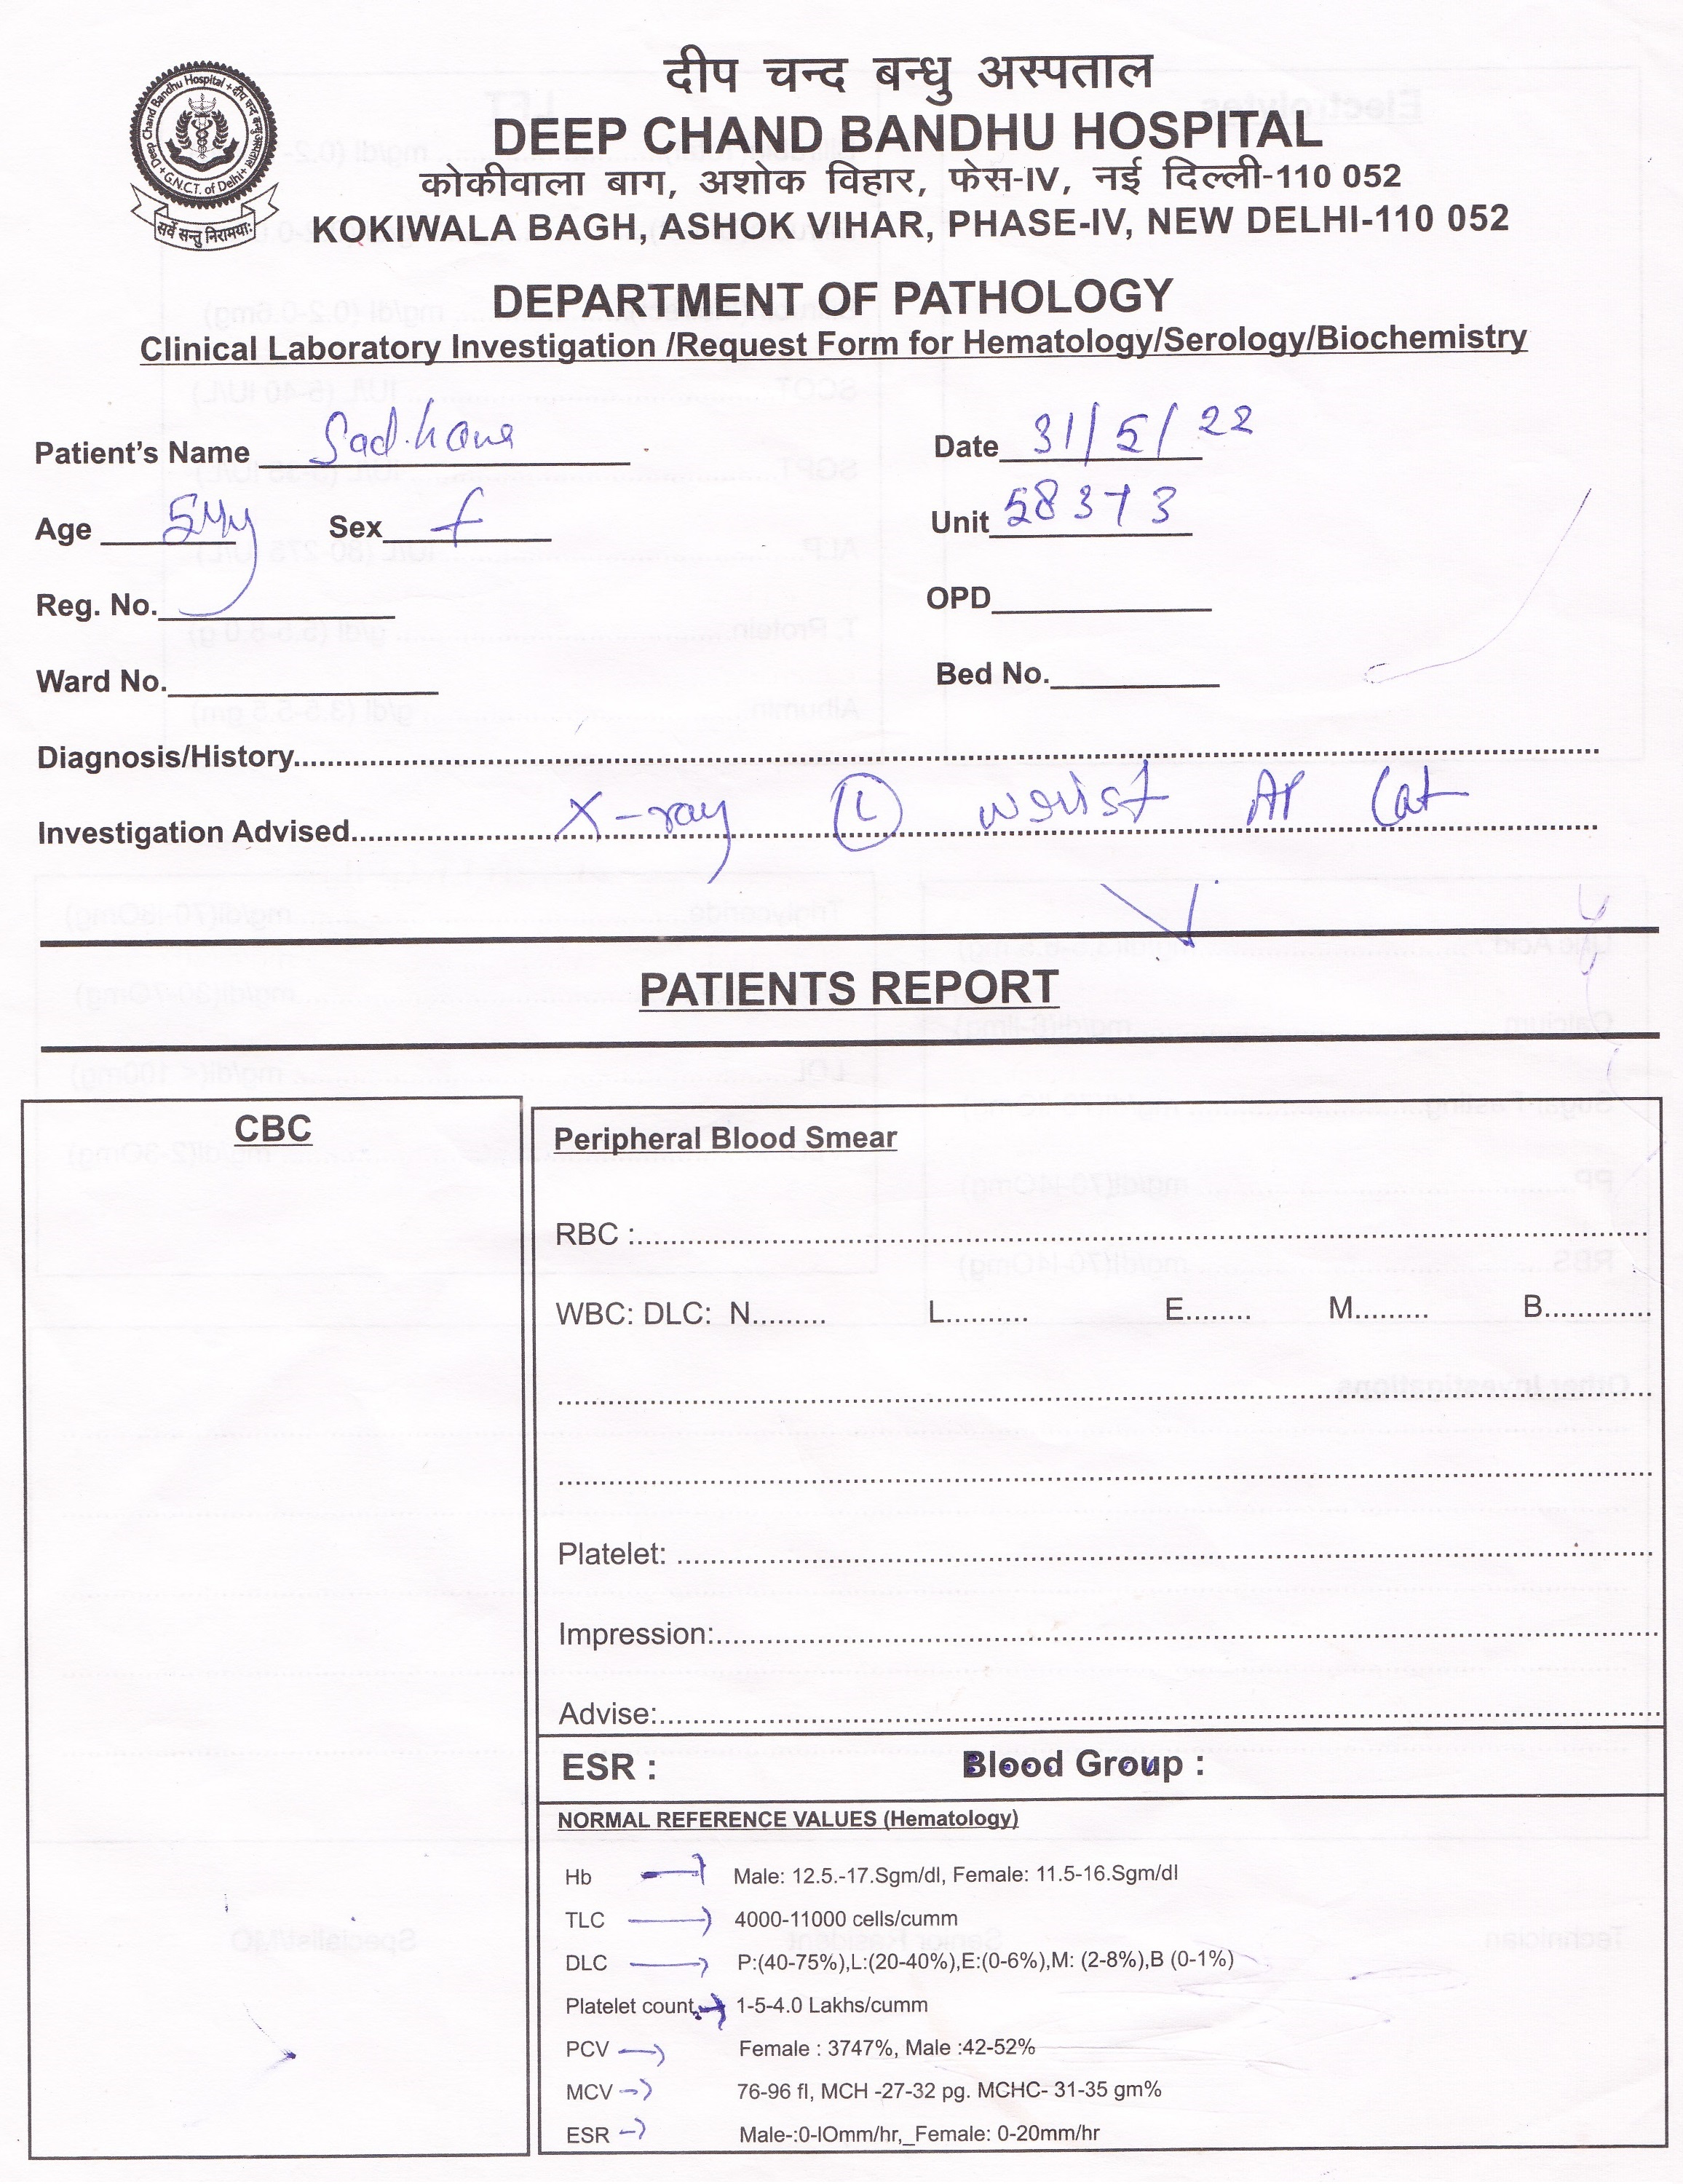 दीप चन्द बन्धु अस्पताल
DEEP CHAND BANDHU HOSPITAL
कोकीवाला बाग, अशोक विहार, फेस-IV, नई दिल्ली-110 052
KOKIWALA BAGH, ASHOK VIHAR, PHASE-IV, NEW DELHI-110 052
Deep Chand Bandhu Hospital + दीप चन्द बन्धु अस्पताल + G.N.C.T. of Delhi +
सर्वे सन्तु निरामयाः
DEPARTMENT OF PATHOLOGY
Clinical Laboratory Investigation /Request Form for Hematology/Serology/Biochemistry
Patient's Name Sadhana Date 31/5/22
Age Sex f Unit 58373
Reg. No. OPD
Ward No. Bed No.
Diagnosis/History
Investigation Advised X-ray (L) wrist AP Lat
PATIENTS REPORT
CBC
Peripheral Blood Smear
RBC :
WBC: DLC: N......... L.......... E....... M......... B............
Platelet:
Impression:
Advise:
ESR : Blood Group :
NORMAL REFERENCE VALUES (Hematology)
Hb → Male: 12.5.-17.Sgm/dl, Female: 11.5-16.Sgm/dl
TLC → 4000-11000 cells/cumm
DLC → P:(40-75%),L:(20-40%),E:(0-6%),M: (2-8%),B (0-1%)
Platelet count → 1-5-4.0 Lakhs/cumm
PCV → Female : 3747%, Male :42-52%
MCV → 76-96 fl, MCH -27-32 pg. MCHC- 31-35 gm%
ESR → Male-:0-lOmm/hr,_Female: 0-20mm/hr